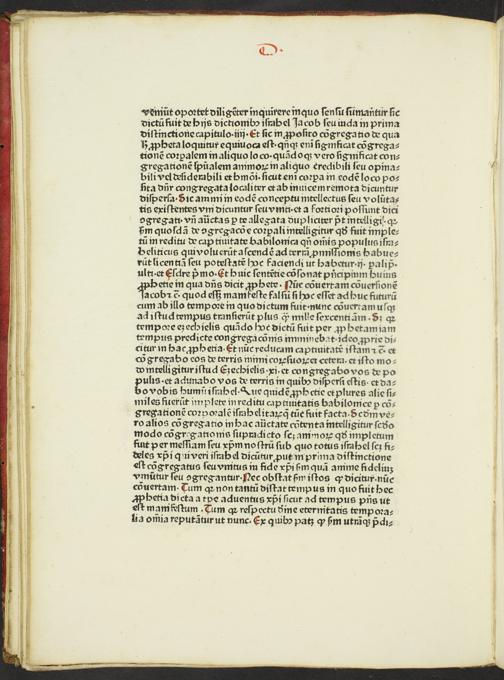 D.
veniūt oportet diligēter inquirere in quo sensu sumant̃ur sic
dictū fuit de hijs dictionibꝫ israhel Iacob seu iuda in prima
distinctione capitulo .iiij. Et sic in ꝓposito cōgregatio de qua
hꝫ ꝓpheta loquitur equiuoca est. qñqꝫ eni significat cōgrega-
tionē corpalem in aliquo loco. quādoqꝫ vero significat con-
gregationē spūalem animoꝝ in aliquo credibili seu opina-
bili vel desiderabili et hmōi. sicut eni corpa in eodē loco po-
sita dn̄r congregata localiter et ab inuicem remota dicuntur
dispersa. Sic animi in eodē conceptu intellectus seu volūta-
tis existentes vni dicuntur seu vniti. et a fortiori possunt dici
ↄgregati. vñ auctas p te allegata dupliciter pōt intelligi. qꝛ
ẜm quosdā de ↄgregacōe corpali intelligitur qd̄ fuit imple-
tū in reditu de captiuitate babilonica qñ om̄is populus isra-
heliticus qui voluerūt ascendē ad terrā ꝓmissionis habue-
rūt licentiā seu potestatē hoc faciendi ut habetur .ij. palip̄.
ulti. et Esdre p̄mo. Et huic sentētie cōsonat p̄ncipium huius
ꝓphetie in qua dn̄s dicit ꝓphete. Nūc cōuertam cōuersionē
Iacob ⁊c̄. quod esset manifeste falsū si hoc esset adhuc futurū
cum ab illo tempore in quo dictum fuit. nunc cōuertam usqꝫ
ad istud tempus transierūt plus qꝫ mille sexcenti ām. Sꝫ qꝛ
tempore ezechielis quādo hoc dictū fuit per ꝓphetam iam
tempus predicte congregacōnis imminebat. ideo ꝓprie di-
citur in hac ꝓphetia. Et nūc reducam captiuitatē istam ⁊c̄. et
cōgregabo eos de terris inimicorꝝ suoꝝ et cetera. et isto mo-
do intelligitur istud Ezechielis .xi. et congregabo vos de po
pulis. et adunabo vos de terris in quibꝫ dispersi estis. et da-
bo vobis humū israhel. Que quidē ꝓphetie et plures alie si-
miles fuerūt implete in reditu captiuitatis babilonice p cō-
gregationē corporalē israhelitarꝝ q̄ tūc fuit facta. Scdm ve-
ro alios cōgregatio in hac auctate cōtenta intelligitur scdo
modo cōgregationis supradicto scꝫ animoꝝ qd̄ impletum
fuit per messiam seu xp̄m nostrū sub quo totus israhel scꝫ fi-
deles xp̄i qui veri israhel dicūtur, put in prima distinctione
est cōgregatus seu vnitus in fide xp̄i ẜm quā anime fideliuꝫ
vniūtur seu ↄgregantur. Nec obstat ẜm istos qꝫ dicitur. nūc
cōuertam. Tum qꝛ non tantū distat tempus in quo fuit hec
ꝓphetia dicta a tpe aduentus xp̄i sicut ad tempus p̄ns ut
est manifestum. Tum qꝛ respectu diuine eternitatis tempora-
lia om̄ia reputātur ut nunc. Ex quibꝫ patꝫ qꝫ ẜm utrāqꝫ p̄di-